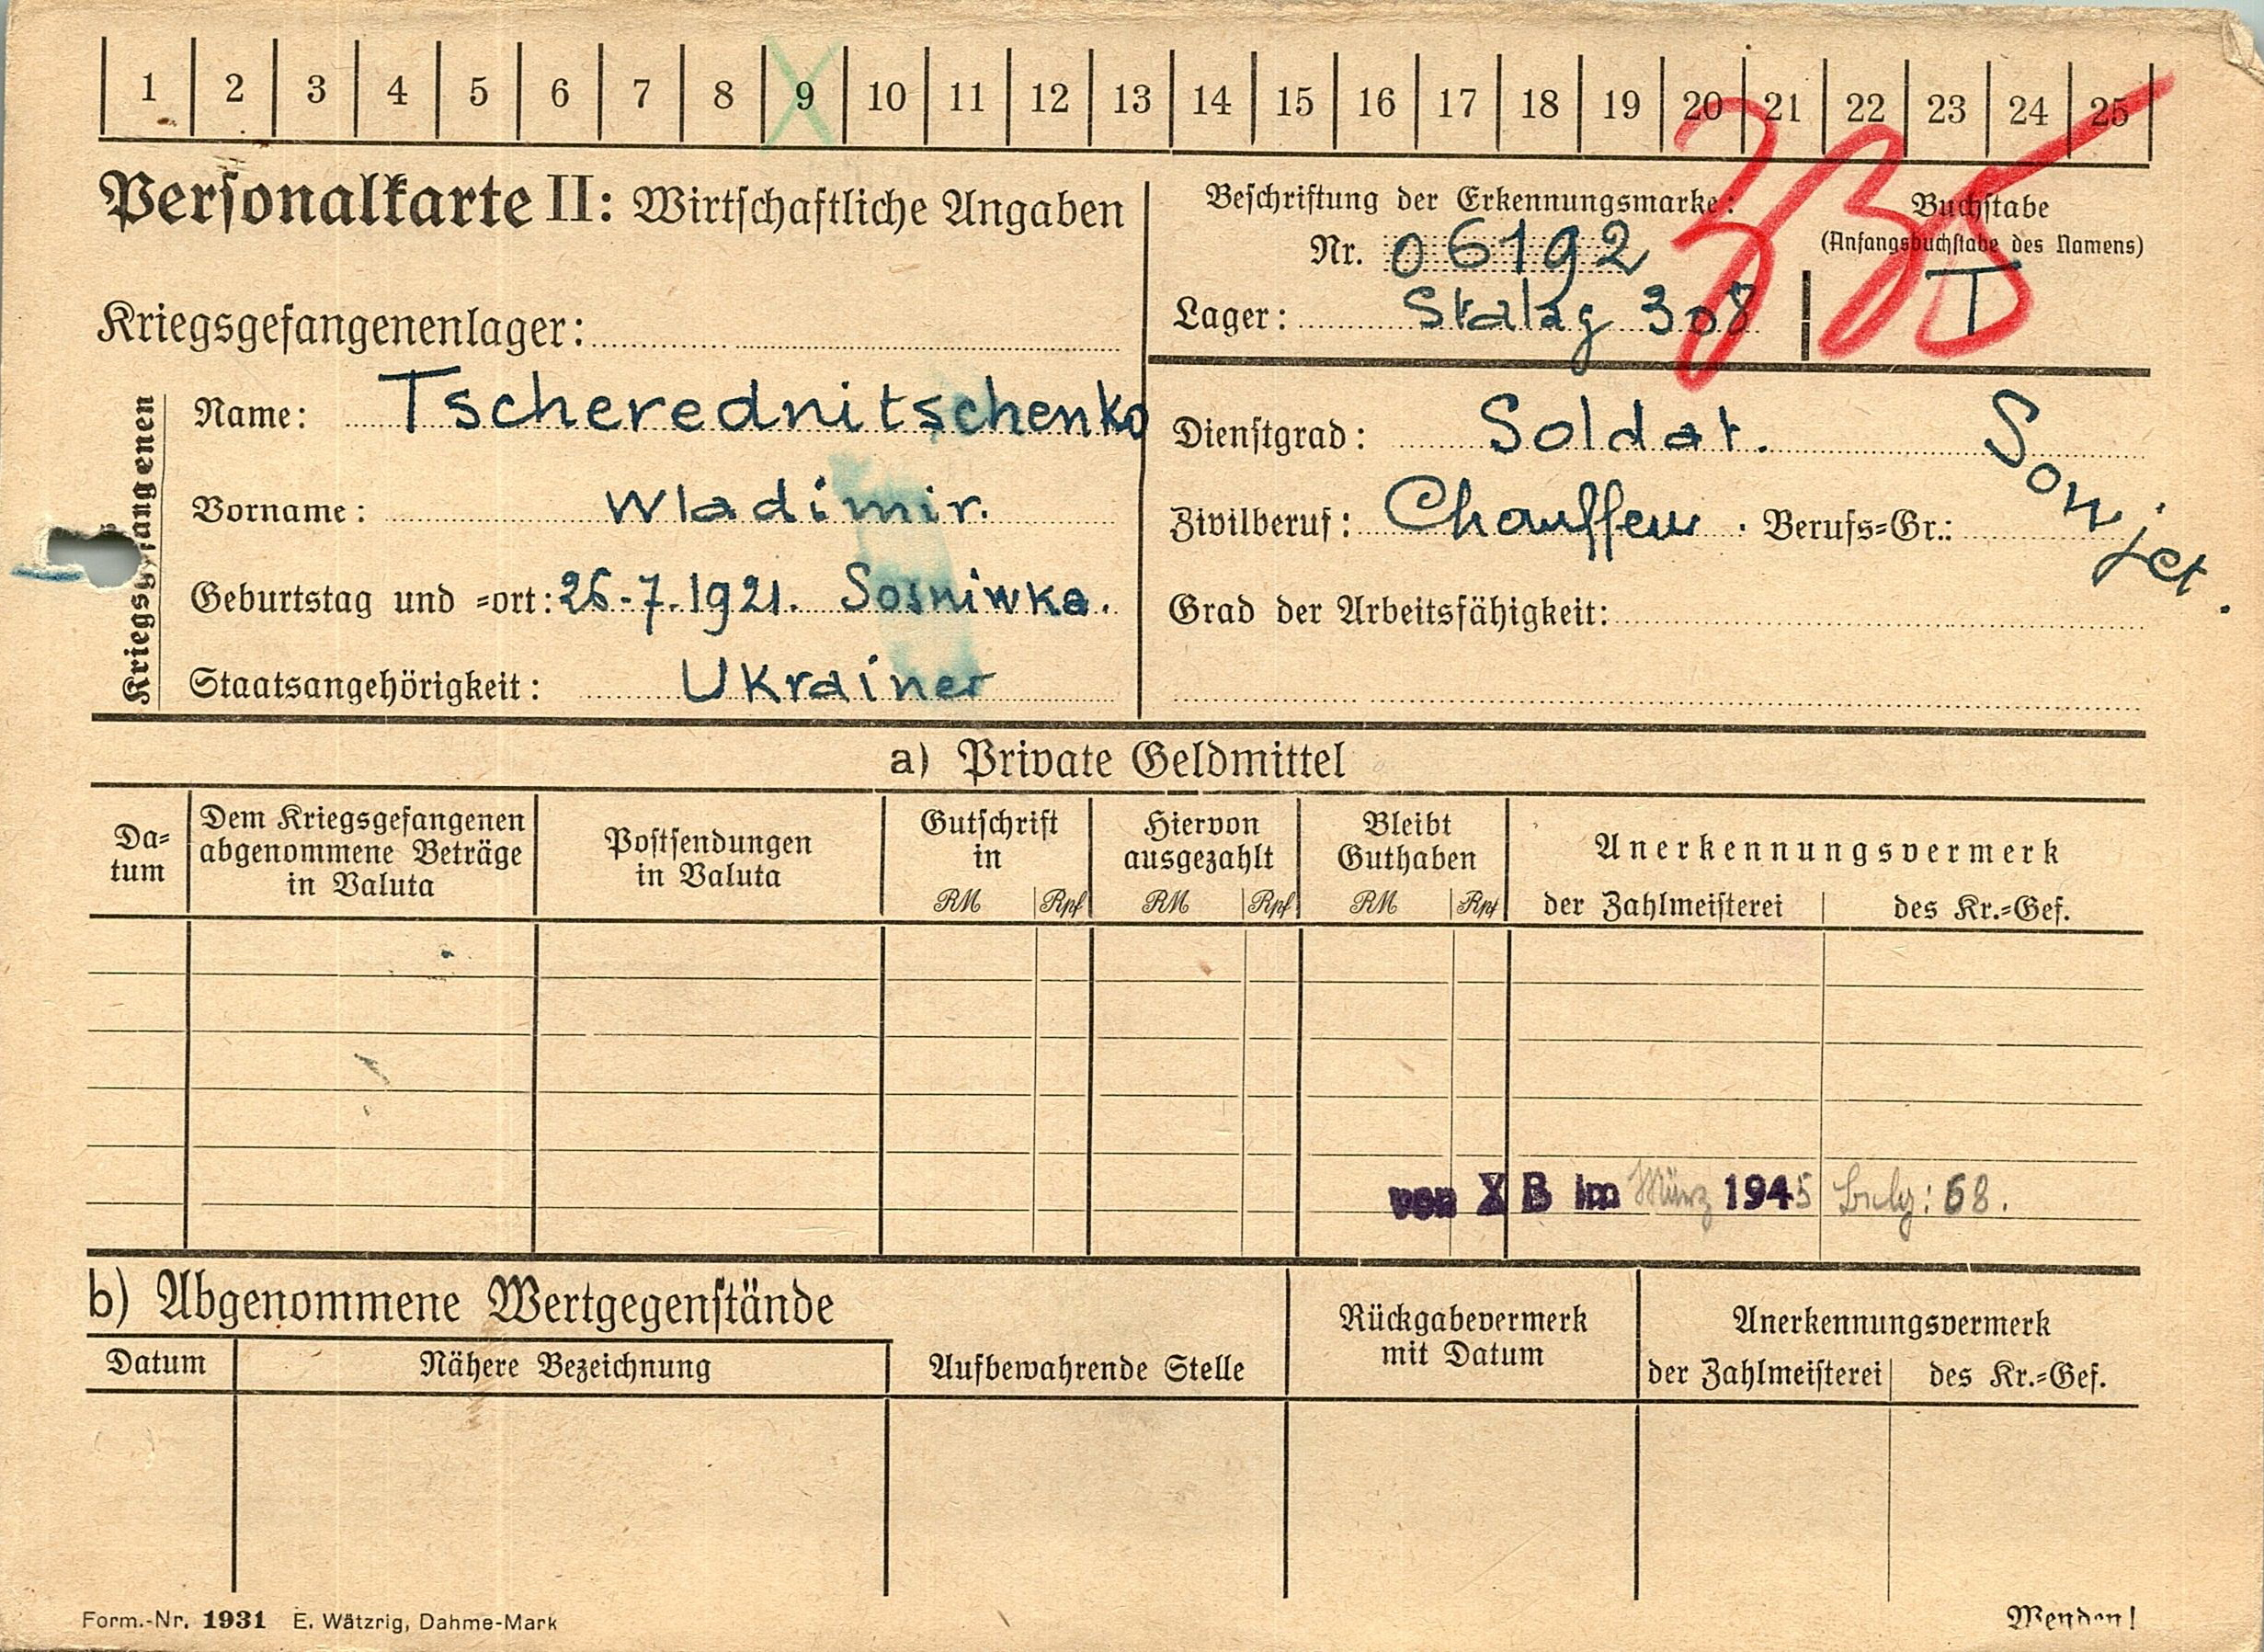 1 2 3 4 5 6 7 8 9 10 11 12 13 14 15 16 17 18 19 20 21 22 23 24 25
335
Personalkarte II: Wirtschaftliche Angaben
Beschriftung der Erkennungsmarke:
Nr. 06192
Lager: Stalag 308
Buchstabe
(Anfangsbuchstabe des Namens)
T
Kriegsgefangenenlager:
Kriegsgefangenen
Name: Tscherednitschenko
Vorname: Wladimir.
Geburtstag und =ort: 26.7.1921. Sosniwka.
Staatsangehörigkeit: Ukrainer
Dienstgrad: Soldat.
Sowjet.
Zivilberuf: Chauffeur. Berufs=Gr.:
Grad der Arbeitsfähigkeit:
a) Private Geldmittel
Da=
tum
Dem Kriegsgefangenen
abgenommene Beträge
in Valuta
Postsendungen
in Valuta
Gutschrift
in
RM Rpf
Hiervon
ausgezahlt
RM Rpf
Bleibt
Guthaben
RM Rpf
Anerkennungsvermerk
der Zahlmeisterei des Kr.=Gef.
von X B im März 1945 68.
b) Abgenommene Wertgegenstände
Datum
Nähere Bezeichnung
Aufbewahrende Stelle
Rückgabevermerk
mit Datum
Anerkennungsvermerk
der Zahlmeisterei des Kr.=Gef.
Form.-Nr. 1931 E. Wätzrig, Dahme-Mark
Wenden!